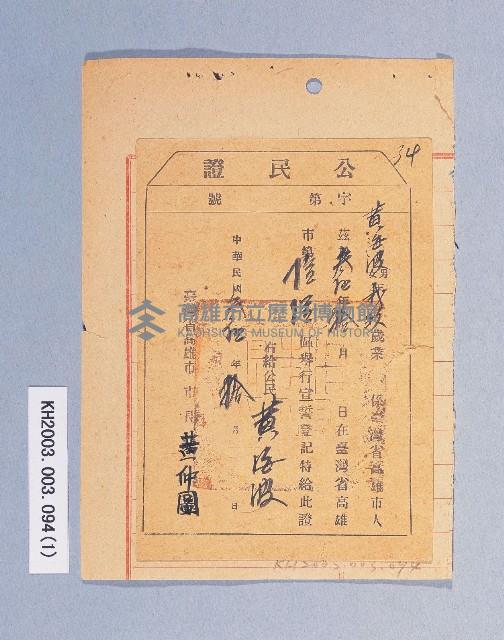 34
公民證
字第 號
黃海波 男女年 歲業 係臺灣省高雄市人
茲 年 月 日在臺灣省高雄
市第 區舉行宣誓登記特給此證
右給公民 黃海波
中華民國 年拾月 日
臺灣省高雄市市長 黃仲圖
高雄市立歷史博物館
KAOHSIUNG MUSEUM OF HISTORY
KH2003.003.094
KH2003.003.094(1)